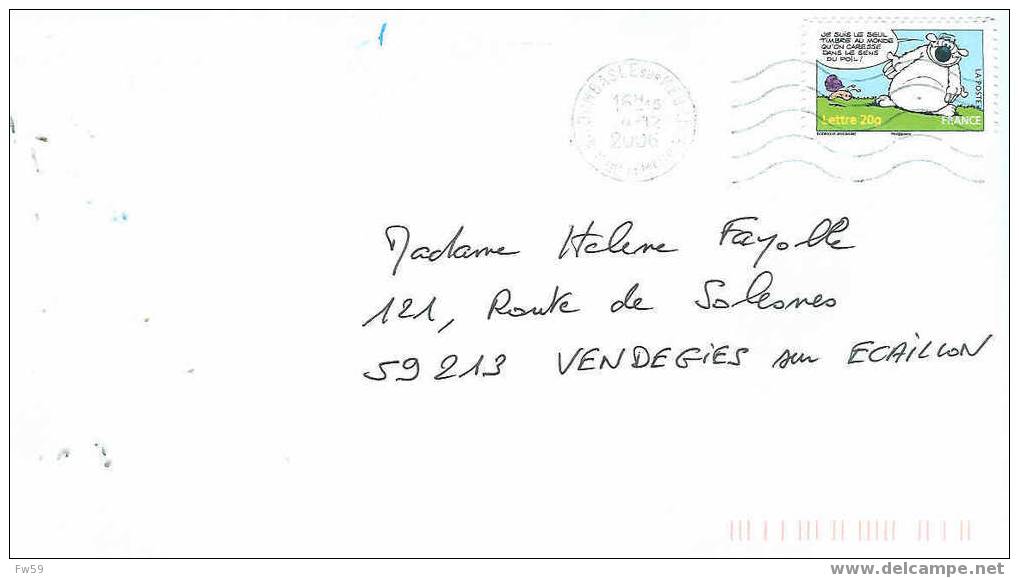 JE SUIS LE SEUL
TIMBRE AU MONDE
QU'ON CARESSE
DANS LE SENS
DU POIL!
LA POSTE
Lettre 20g
FRANCE
DOMBASLE SUR MEURTHE
2006
Madame Helene Fayolle
121, Route de Solesmes
59213 VENDEGIES sur ECAILLON
Fw59
www.delcampe.net